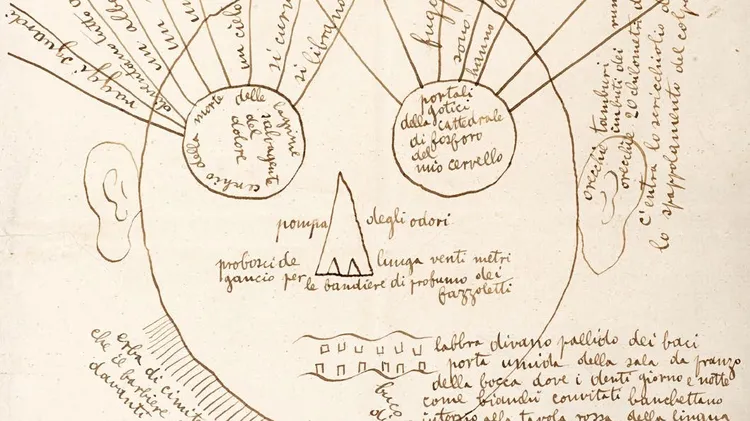 raggi sguardi
diventano tutto
un alb
un
un cielo
si curv
si librano
fugg
sono
hanno l
cerchio della morte delle
lagrime
salvagente
del
dolore
portali
gotici
della cattedrale
di fosforo
del
mio cervello
orecchie tamburi
imbuti dei
orecchie 20 chilometri d
c'entra lo scricchiolio d
lo spappolamento del colp
pompa degli odori
proboscide lunga venti metri
gancio per le bandiere di profumo dei
fazzoletti
erba di cimit
che il barbiere
davanti
labbra divano pallido dei baci
porta umida della sala da pranzo
della bocca dove i denti giorno e notte
come bianchi convitati banchettano
intorno alla tavola rossa della lingua
buco
di